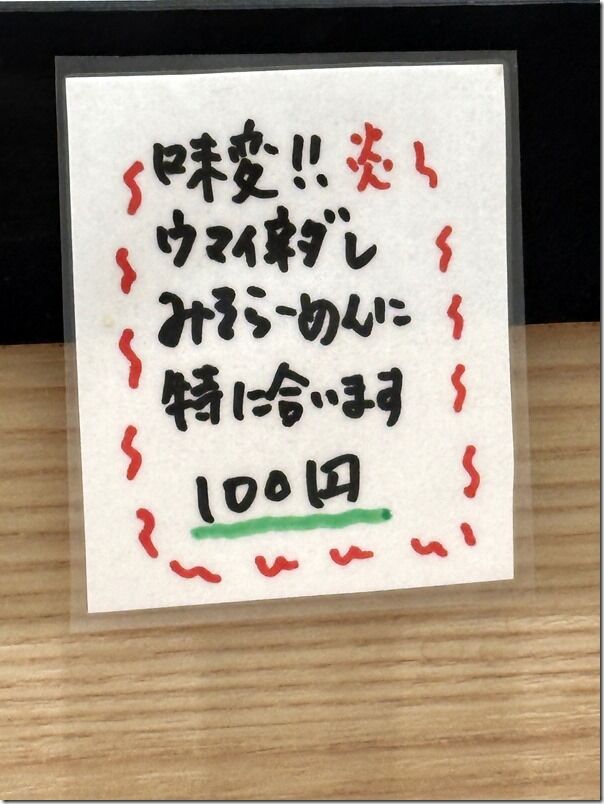 味変!! 炎
ウマイ辛ダレ
みそらーめんに
特に合います
100円